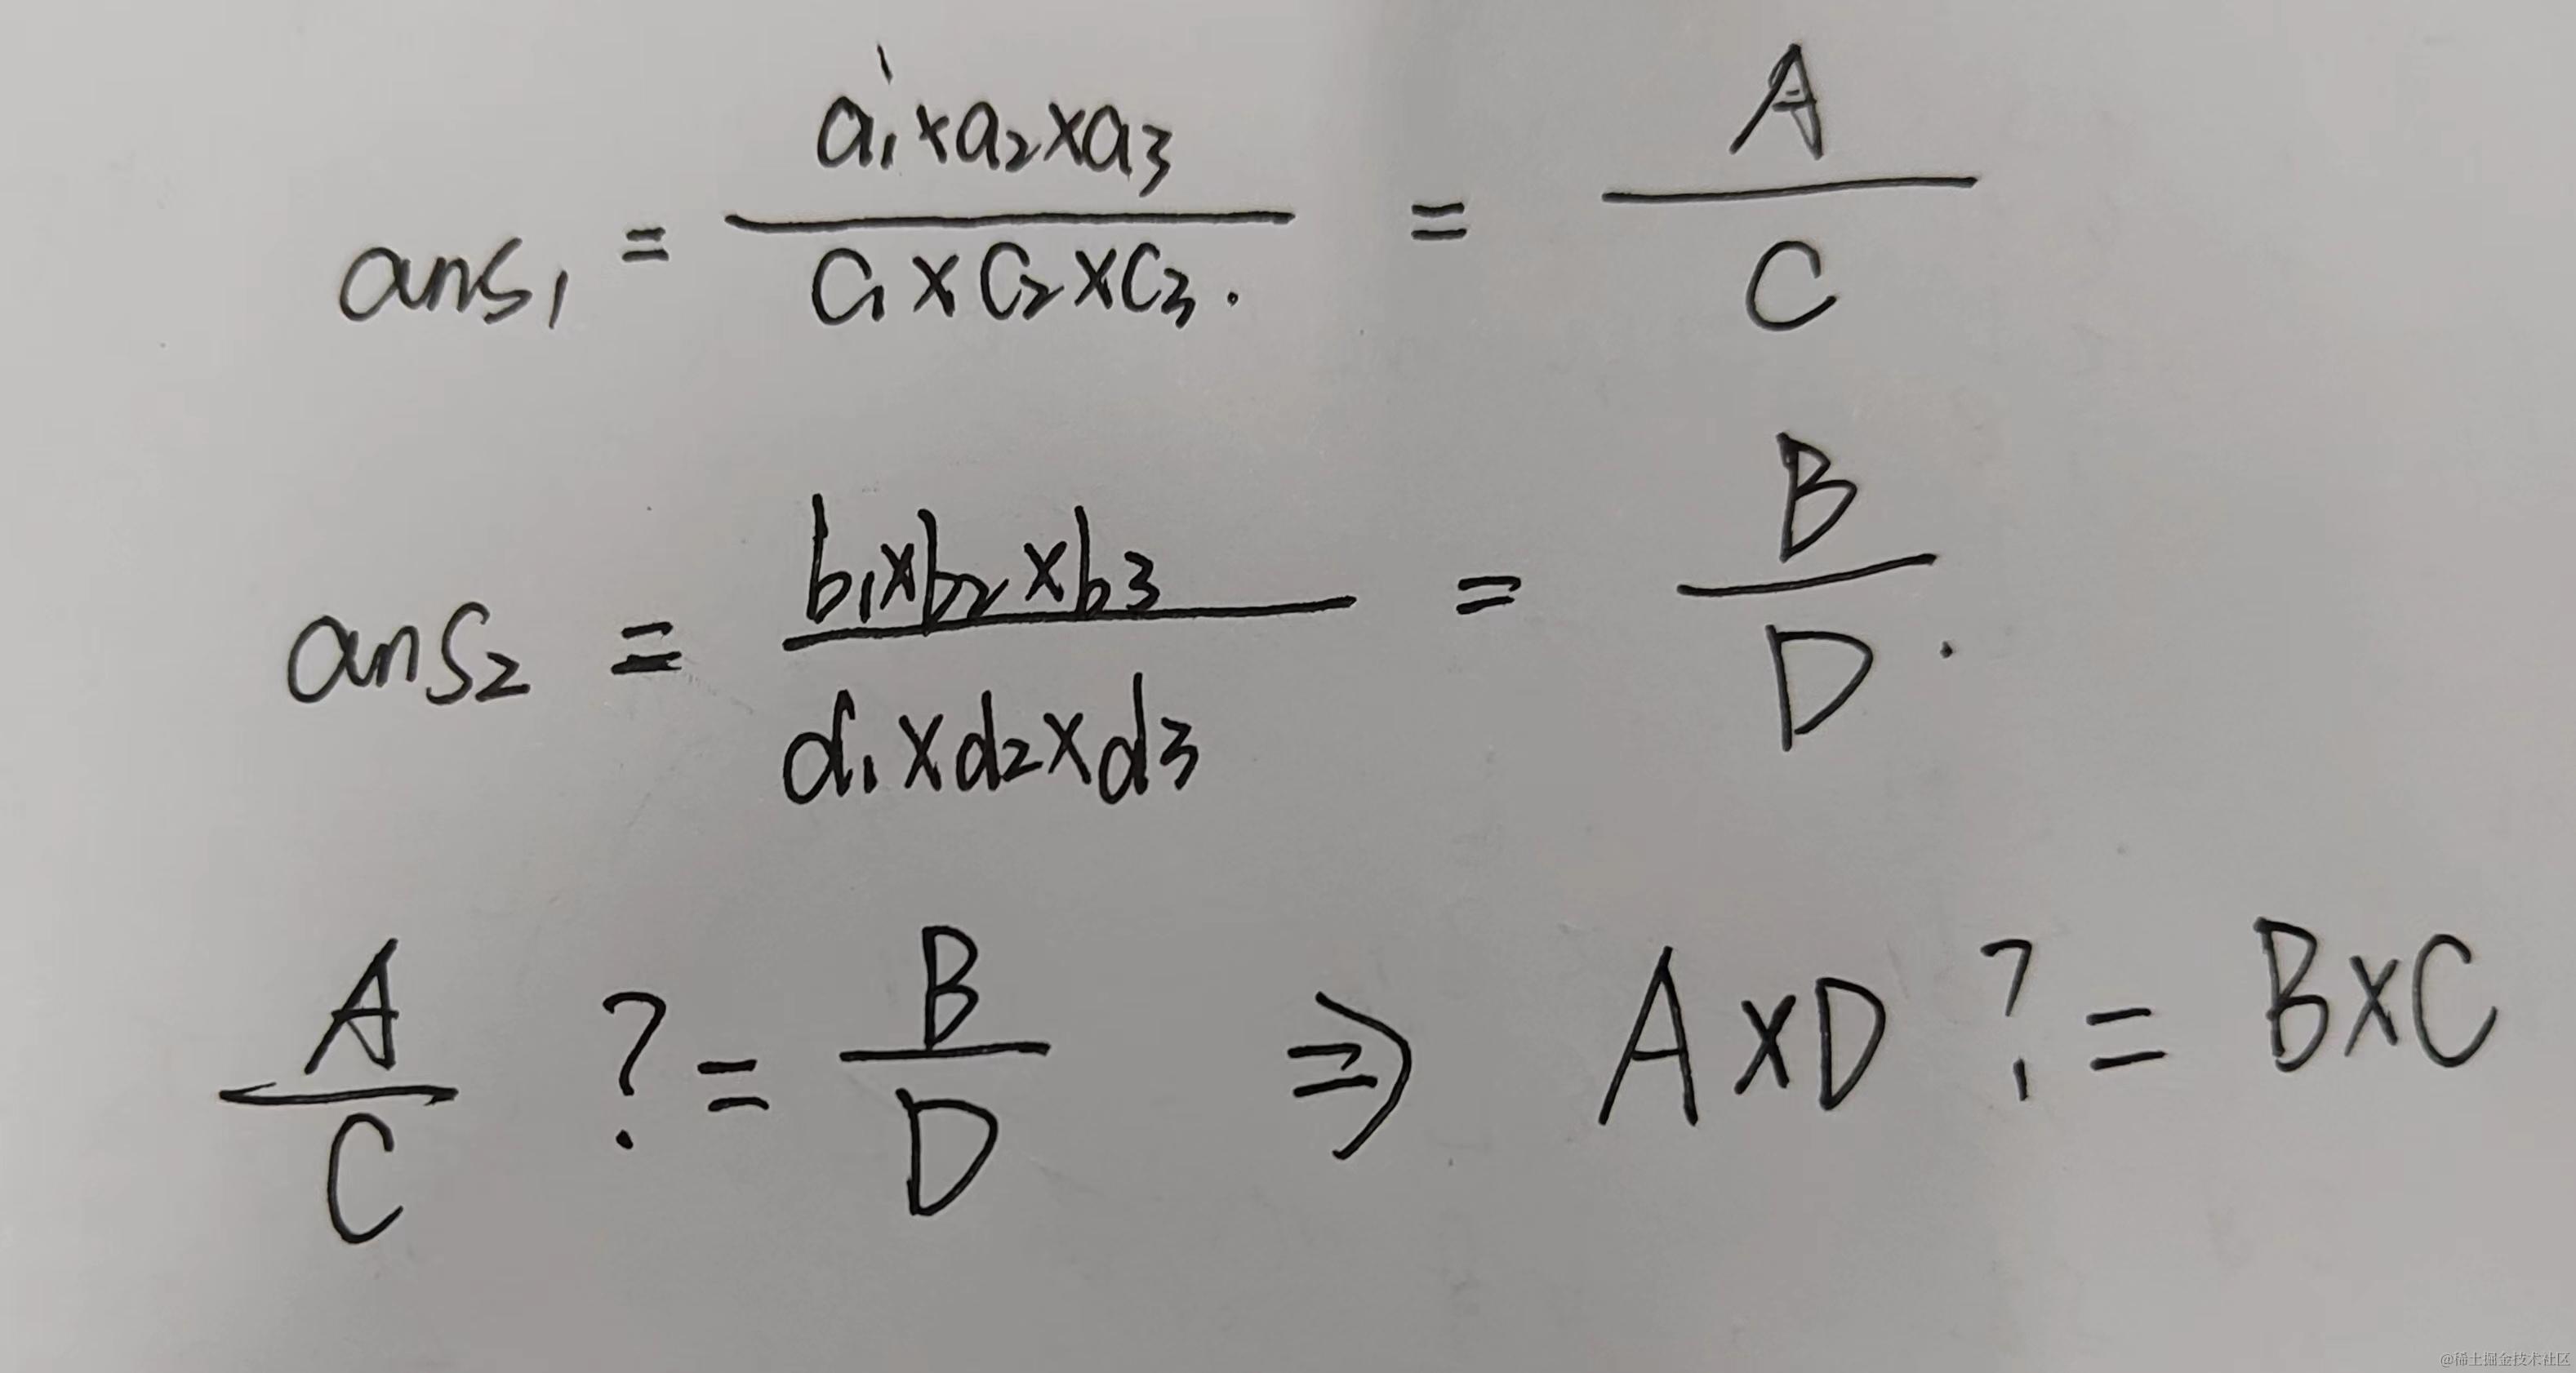 ans₁ = a₁×a₂×a₃ / c₁×c₂×c₃. = A / C
ans₂ = b₁×b₂×b₃ / d₁×d₂×d₃ = B / D.
A / C ?= B / D ⇒ A×D ?= B×C
@稀土掘金技术社区